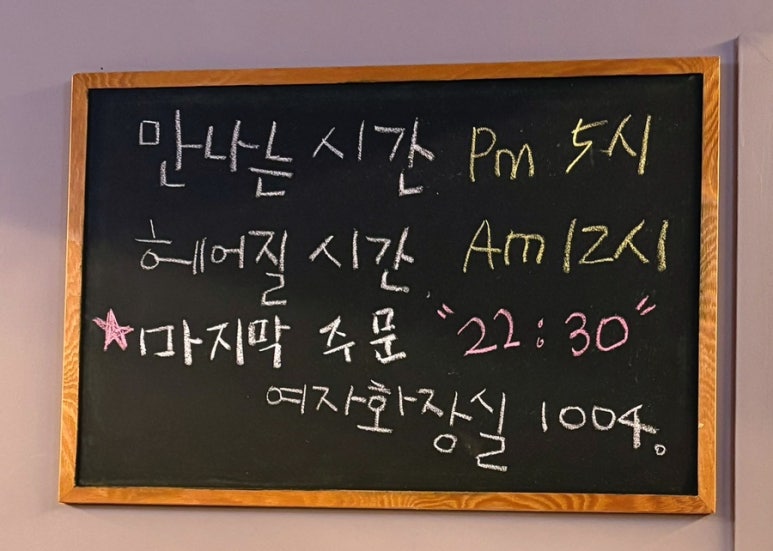 만나는 시간 Pm 5시
헤어질 시간 Am 12시
★마지막 주문 "22:30"
여자화장실 1004。